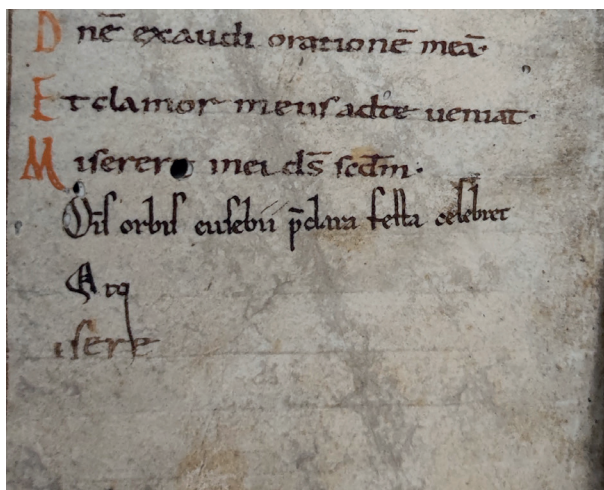 Dnē exaudi orationē meā·
Et clamor meus ad te ueniat·
Miserere mei ds̄ scd̄m·
Oīs orbis eusebii p̄clara festa celebret
Atq
isere